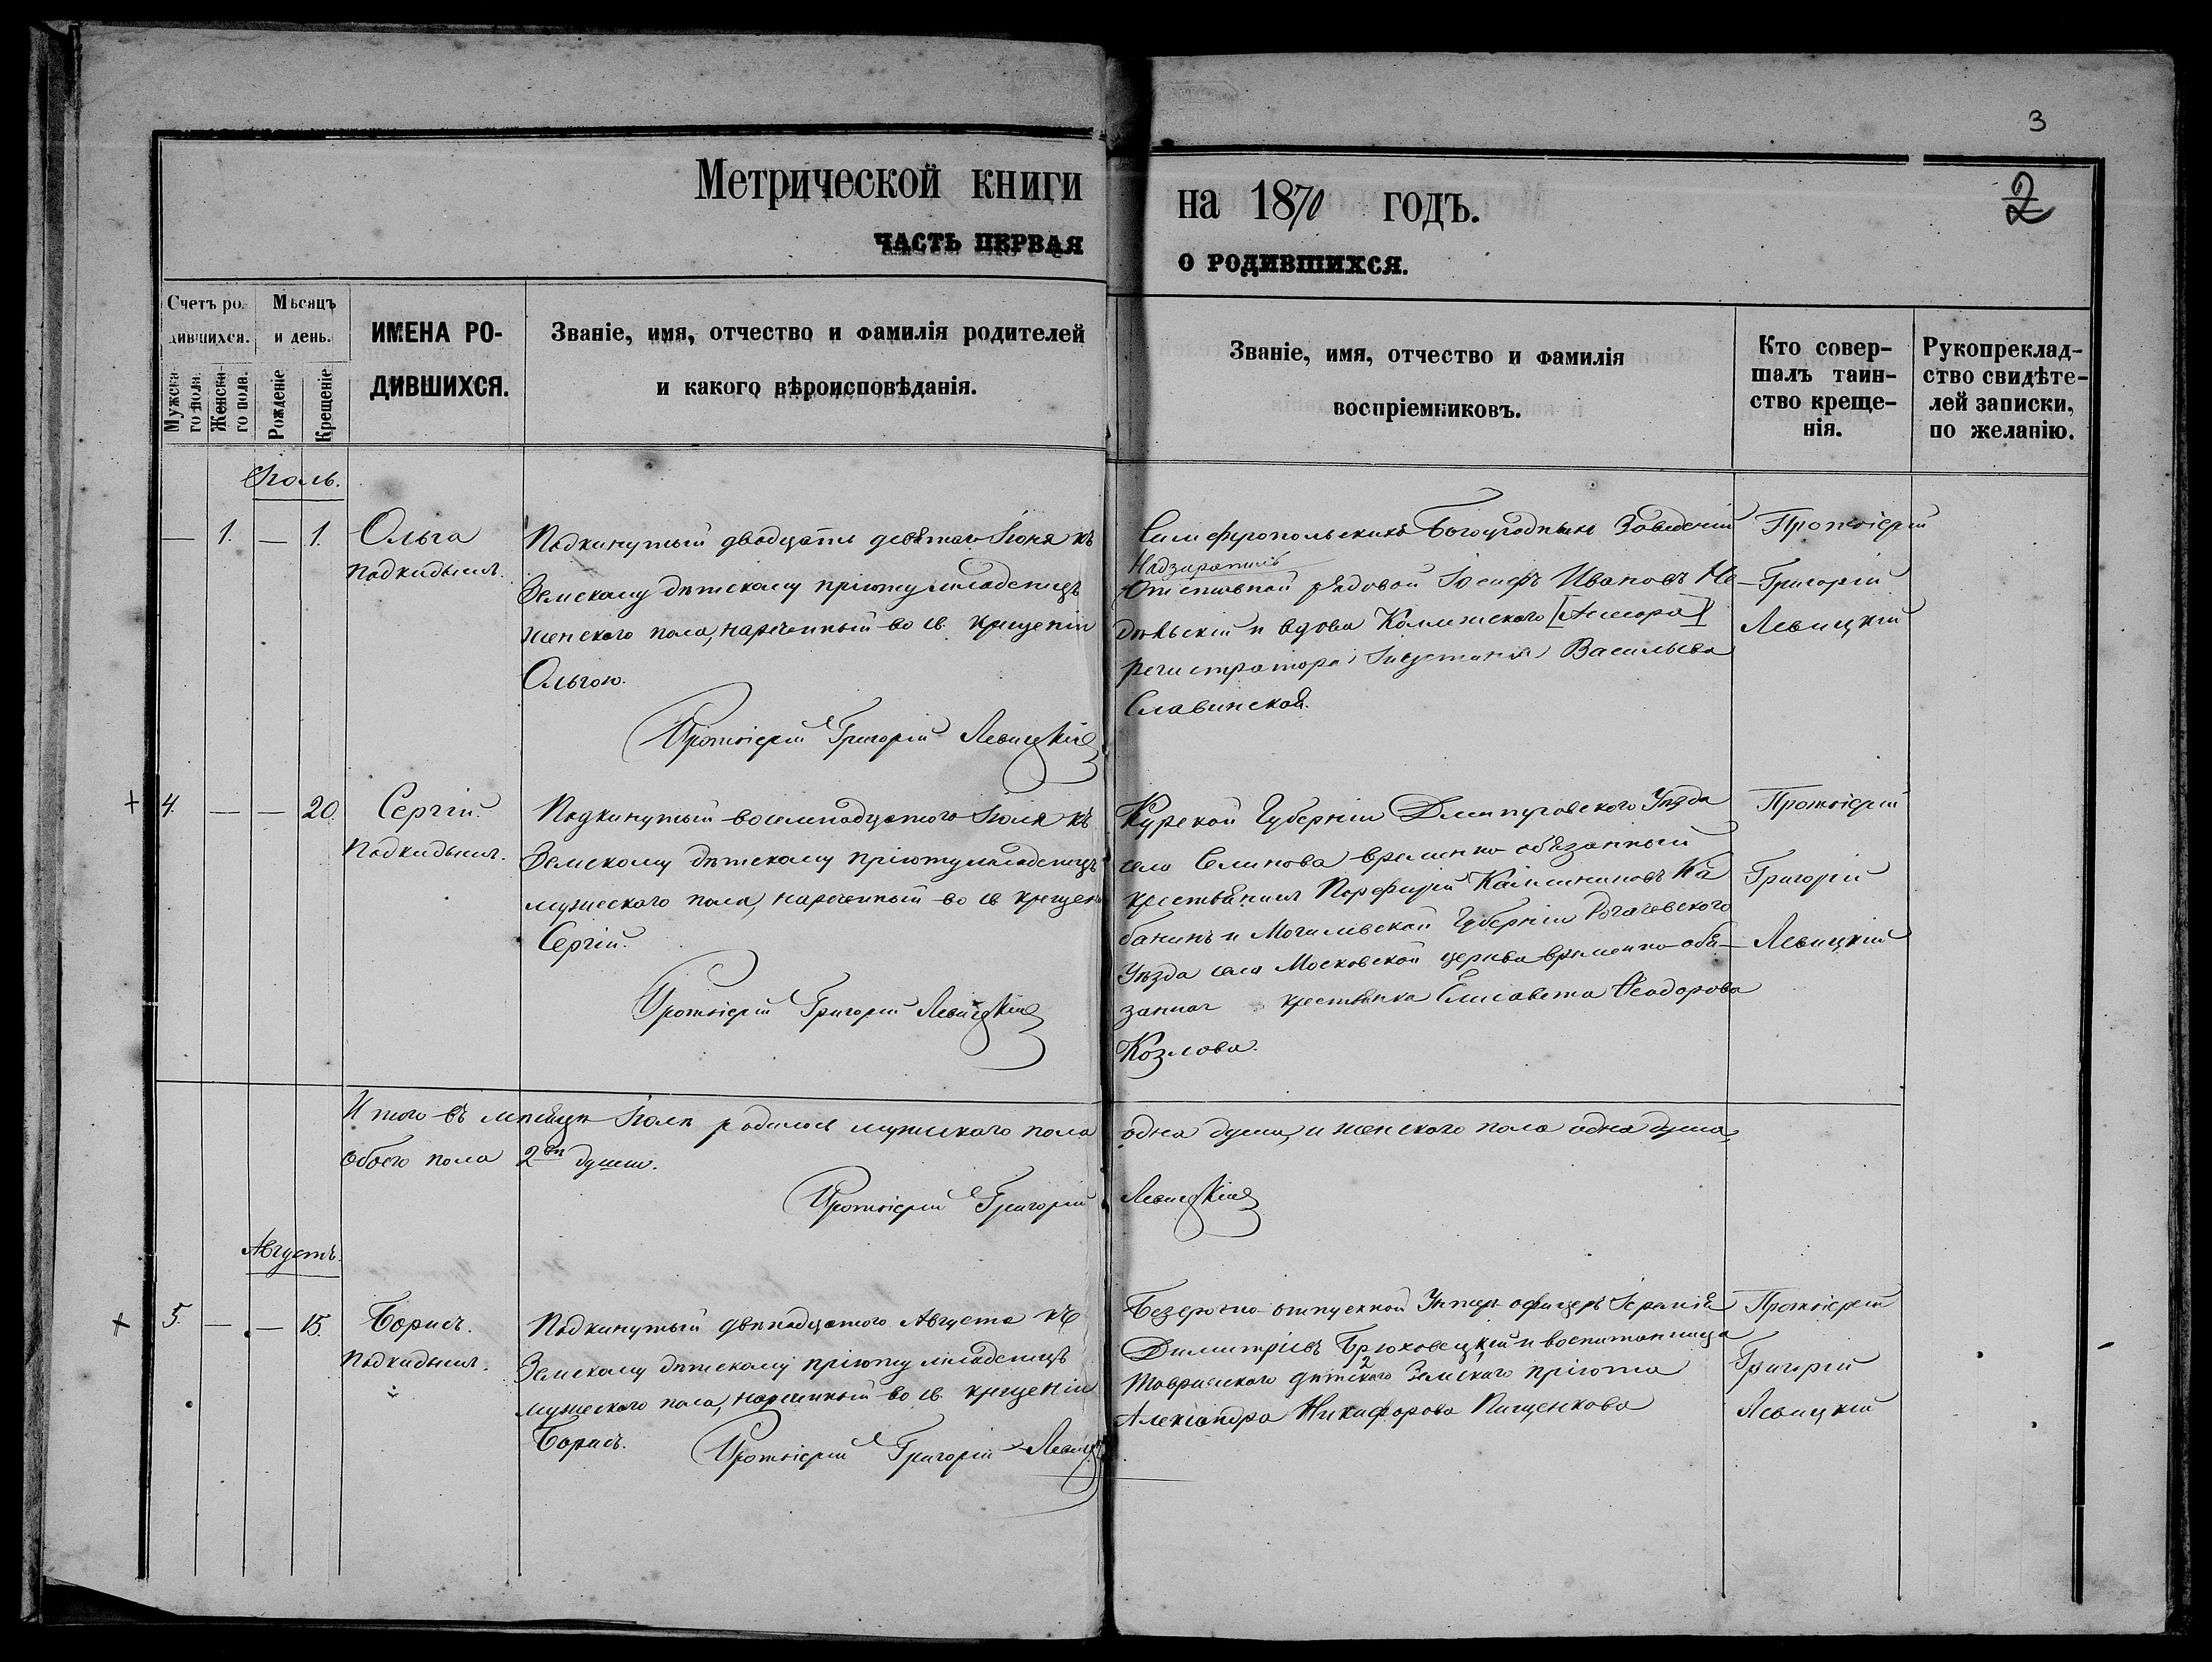 3
2
Метрической книги
на 1870 годъ.
ЧАСТЬ ПЕРВАЯ
О РОДИВШИХСЯ.
Счетъ ро-
дившихся.
Мужска-
го пола.
Женска-
го пола.
Мѣсяцъ
и день.
Рожденіе
Крещеніе
ИМЕНА РО-
ДИВШИХСЯ.
Званіе, имя, отчество и фамилія родителей
и какого вѣроисповѣданія.
Званіе, имя, отчество и фамилія
воспріемниковъ.
Кто совер-
шалъ таин-
ство креще-
нія.
Рукоприклад-
ство свидѣте-
лей записки,
по желанію.
Іюль.
— 1. — 1.
Ольга
Подкидышъ.
Подкинутый двадцать девятаго Іюня къ
Земскому дѣтскому пріюту младенецъ
женскаго пола, нареченный во св. крещеніи
Ольгою.
Протоіерей Григорій Левицкій
Симферопольскихъ Богоугодныхъ Заведеній
Надзиратель
рядовой Іосифъ Ивановъ Не-
дѣльскій и вдова Колежского
регистратора Васильева
Славинская.
Протоіерей
Григорій
Левицкій
+ 4. — — 20.
Сергій.
Подкидышъ.
Подкинутый восемнадцатого Іюля къ
Земскому дѣтскому пріюту младенецъ
мужескаго пола, нареченный во св крещеніи
Сергій.
Протоіерей Григорій Левицкій
Курской Губерніи Дмитровского Уѣзда
села Селинова временно обязанный
крестьянинъ Порфирій Калининовъ Ка
банинъ и Могилевской Губерніи Рогачевского
Уѣзда села Московской церква временно-обя-
занная крестьянка Елисавета Ѳеодорова
Козлова.
Протоіерей
Григорій
Левицкій
Итого въ мѣсяцѣ Іюлѣ родилось мужскаго пола одна душа, и женского пола одна душа,
обоего пола 2вѣ души.
Протоіерей Григорій Левицкій
Августъ.
+ 5. — — 15.
Борисъ.
Подкидышъ.
Подкинутый двѣнадцатого Августа къ
Земскому дѣтскому пріюту младенецъ
мужескаго пола, нареченный во св. крещеніи
Борисъ.
Протоіерей Григорій Левиц
Безсрочно-отпускной Унтер офицеръ Іеремія
Димитріевъ Брюховецкій и воспитанница
Таврического дѣтского Земского пріюта
Александра Никифорова Пищенкова
Протоіерей
Григорій
Левицкій